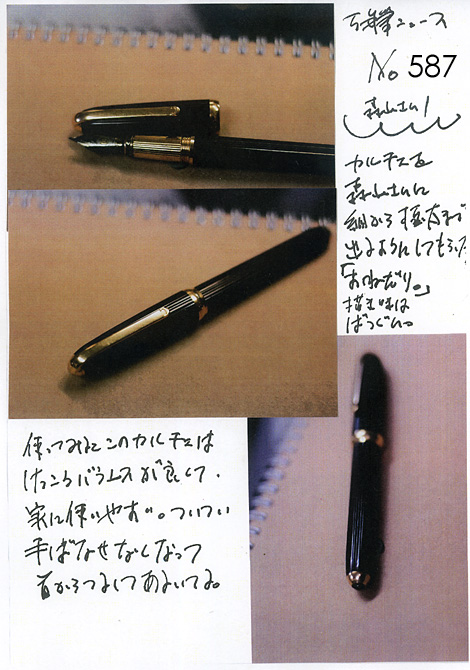 万年筆ニュース
No 587
森山さん!
カルチェを
森山さんに
細から極太まで
出るようにしてもらった
「おねだり。」
描き味は
ばつぐん。
使ってみたこのカルチェは
けっこうバランスが良くて、
実に使いやすい。ついつい
手ばなせなくなって
首からつるしてあるいてる。